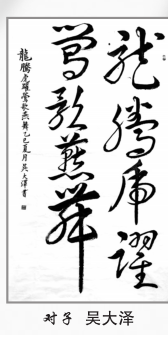 龍騰虎躍
鶯歌燕舞
龍騰虎躍鶯歌燕舞乙巳夏月吴大泽書
对子 吴大泽